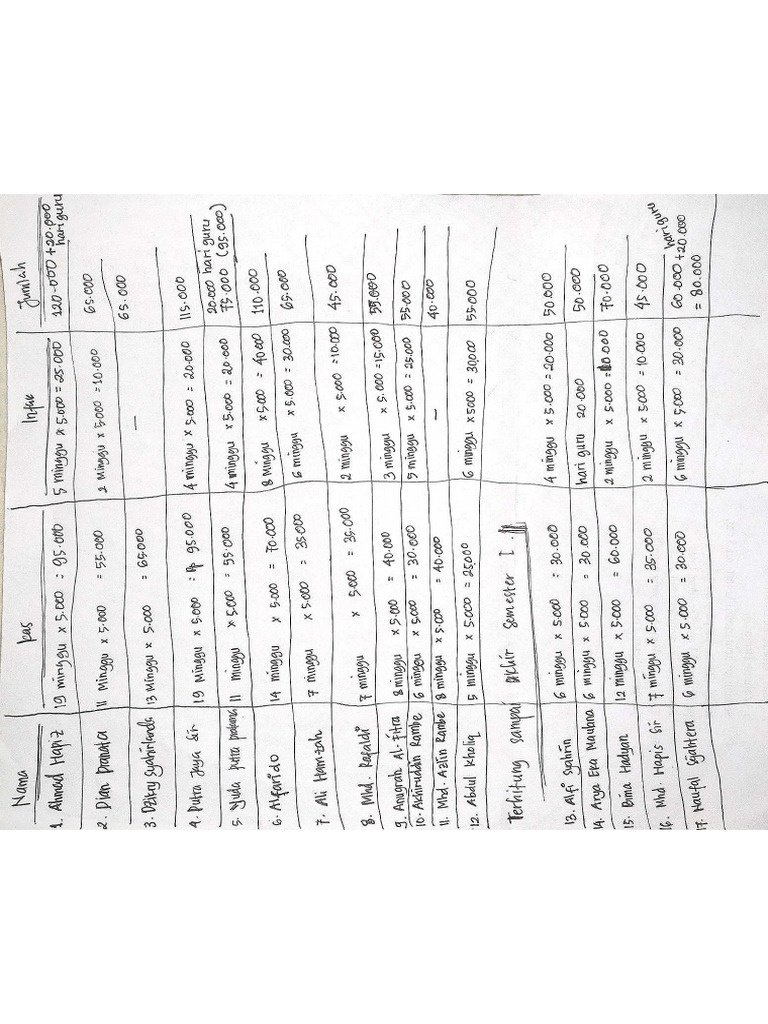 Nama Kas Infaq Jumlah
1. Ahmad Hapiz 19 minggu x 5.000 = 95.000 5 minggu x 5.000 = 25.000 120.000 + 20.000 hari guru
2. Dian Pranata 11 Minggu x 5.000 = 55.000 2 Minggu x 5.000 = 10.000 65.000
3. 13 Minggu x 5.000 = 65.000 — 65.000
4. Putra Jaya Sir 19 Minggu x 5.000 = Rp 95.000 4 minggu x 5.000 = 20.000 115.000
5. Yuda putra 11 minggu x 5.000 = 55.000 4 minggu x 5.000 = 20.000 20.000 hari guru 75.000 (95.000)
6. Alfarido 14 minggu x 5.000 = 70.000 8 Minggu x 5.000 = 40.000 110.000
7. Ali Hamzah 7 minggu x 5.000 = 35.000 6 minggu x 5.000 = 30.000 65.000
8. Mhd. Rafaldi 7 minggu x 5.000 = 35.000 2 minggu x 5.000 = 10.000 45.000
9. Anugrah Al-Fitra 8 minggu x 5.000 = 40.000 3 minggu x 5.000 = 15.000 55.000
10. Akhiruddin Rambe 6 minggu x 5.000 = 30.000 5 minggu x 5.000 = 25.000 55.000
11. Mhd. Azlin Rambe 8 minggu x 5.000 = 40.000 — 40.000
12. Abdul Kholiq 5 minggu x 5.000 = 25.000 6 minggu x 5.000 = 30.000 55.000
Terhitung sampai akhir semester I.
13. Alfi Syahrin 6 minggu x 5.000 = 30.000 4 minggu x 5.000 = 20.000 50.000
14. Arya Eka Maulana 6 minggu x 5.000 = 30.000 hari guru 20.000 50.000
15. Bima Hadyan 12 minggu x 5.000 = 60.000 2 minggu x 5.000 = 10.000 70.000
16. Mhd. Hapis Sir 7 minggu x 5.000 = 35.000 2 minggu x 5.000 = 10.000 45.000
17. Naufal Sejahtera 6 minggu x 5.000 = 30.000 6 minggu x 5.000 = 30.000 60.000 + 20.000 hari guru
= 80.000